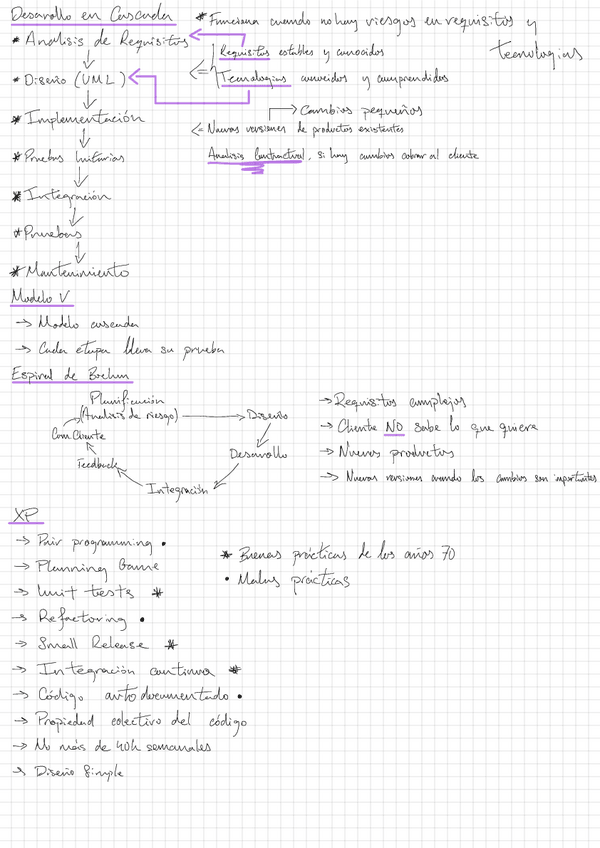 Desarollo en Cascada
* Funciona cuando no hay riesgos en requisitos y
tecnologias
* Analisis de Requisitos
Requisitos estables y conocidos
* Diseño (UML)
Tecnologias conocidas y comprendidas
* Implementación
Cambios pequeños
Nuevas versiones de productos existentes
* Pruebas Unitarias
Analisis Contractual, si hay cambios cobrar al cliente
* Integración
* Pruebas
* Mantenimiento
Modelo V
→ Modelo cascada
→ Cada etapa lleva su prueba
Espiral de Boehm
Planificación
(Analisis de riesgo)
Diseño
Com. Cliente
Desarollo
Feedback
Integración
→ Requisitos complejos
→ Cliente NO sabe lo que quiere
→ Nuevos productos
→ Nuevas versiones cuando los cambios son importantes
XP
→ Pair programming •
→ Planning Game
→ Unit tests *
→ Refactoring •
→ Small Release *
→ Integración continua *
→ Código autodocumentado •
→ Propiedad colectivo del código
→ No más de 40h semanales
→ Diseño Simple
* Buenas prácticas de los años 70
• Malas prácticas